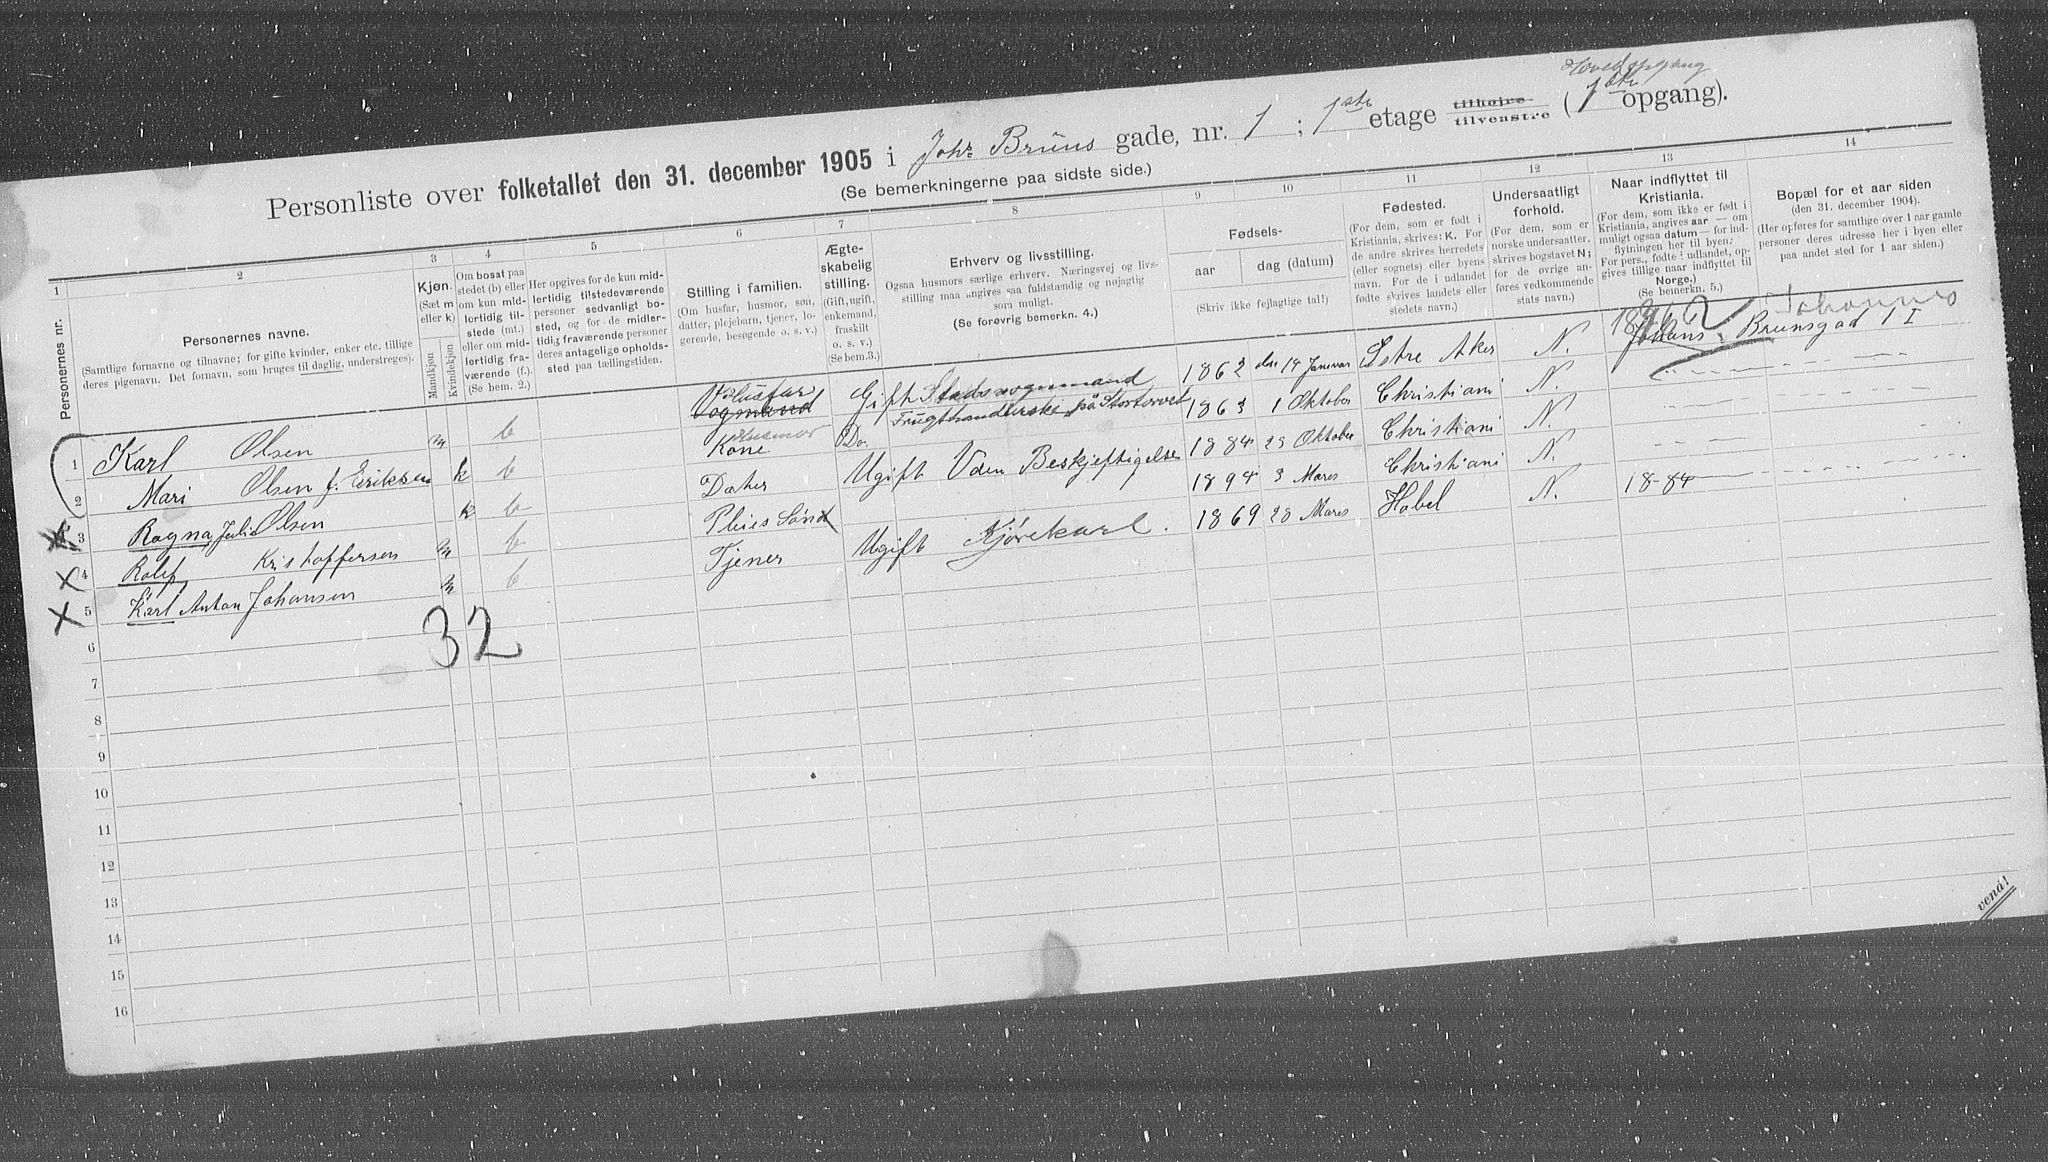 Hovedopgang
Personliste over folketallet den 31. december 1905 i Johs Bruns gade, nr. 1; 1ste etage tilhøjre tilvenstre (1ste opgang).
(Se bemerkningerne paa sidste side.)
1 2 3 4 5 6 7 8 9 10 11 12 13 14
Personernes nr.
Personernes navne.
(Samtlige fornavne og tilnavne; for gifte kvinder, enker etc. tillige
deres pigenavn. Det fornavn, som bruges til daglig, understreges).
Kjøn.
(Sæt m
eller k)
Mandkjøn
Kvindekjøn
Om bosat paa
stedet (b) eller
om kun mid-
lertidig til-
stede (mt.)
eller om mid-
lertidig fra-
værende (f.).
(Se bem. 2.)
Her opgives for de kun mid-
lertidig tilstedeværende
personer sedvanligt bo-
sted, og for de midler-
tidig fraværende personer
deres antagelige opholds-
sted paa tællingstiden.
Stilling i familien.
(Om husfar, husmor, søn,
datter, plejebarn, tjener, lo-
gerende, besøgende o. s. v.)
Ægte-
skabelig
stilling.
(Gift, ugift,
enkemand,
fraskilt
o. s. v.)
(Se bem.3.)
Erhverv og livsstilling.
Ogsaa husmors særlige erhverv. Næringsvej og livs-
stilling maa angives saa fuldstændig og nøjagtig
som muligt.
(Se forøvrig bemerkn. 4.)
Fødsels-
aar
dag (datum)
(Skriv ikke fejlagtige tal!)
Fødested.
(For dem, som er født i
Kristiania, skrives: K. For
de andre skrives herredets
(eller sognets) eller byens
navn. For de i udlandet
fødte skrives landets eller
stedets navn.)
Undersaatligt
forhold.
(For dem, som er
norske undersaatter,
skrives bogstavet N;
for de øvrige an-
føres vedkommende
stats navn.)
Naar indflyttet til
Kristiania.
(For dem, som ikke er født i
Kristiania, angives aar — om
muligt ogsaa datum — for ind-
flytningen her til byen.
For pers., fødte i udlandet, op-
gives tillige naar indflyttet til
Norge.)
(Se bemerkn. 5.)
Bopæl for et aar siden
(den 31. december 1904).
(Her opføres for samtlige over 1 aar gamle
personer deres adresse her i byen eller
paa andet sted for 1 aar siden.)
1 Karl Olsen m b Husfar Vogmand Gift Stadsvognmand 1862 den 14 Januar Østre Aker N. Johannes Johans. Brunsgad 1 I
2 Mari Olsen f. Eriksen k b Kone Husmor Do. Frugthandlerske på Stortorvet 1863 1 Oktober Christiani N.
3 Ragna Julie Olsen k b Dater Ugift Uden Beskjeftigelse 1884 23 Oktober Christiani N.
4 Rolef Kristoffersen m b Pleies Sønd 1894 3 Mares Christiani N.
5 Karl Anton Johansen m b Tjener Ugift Kjørekarl. 1869 28 Mares Habel N. 1884
32
6
7
8
9
10
11
12
13
14
15
16
vend!